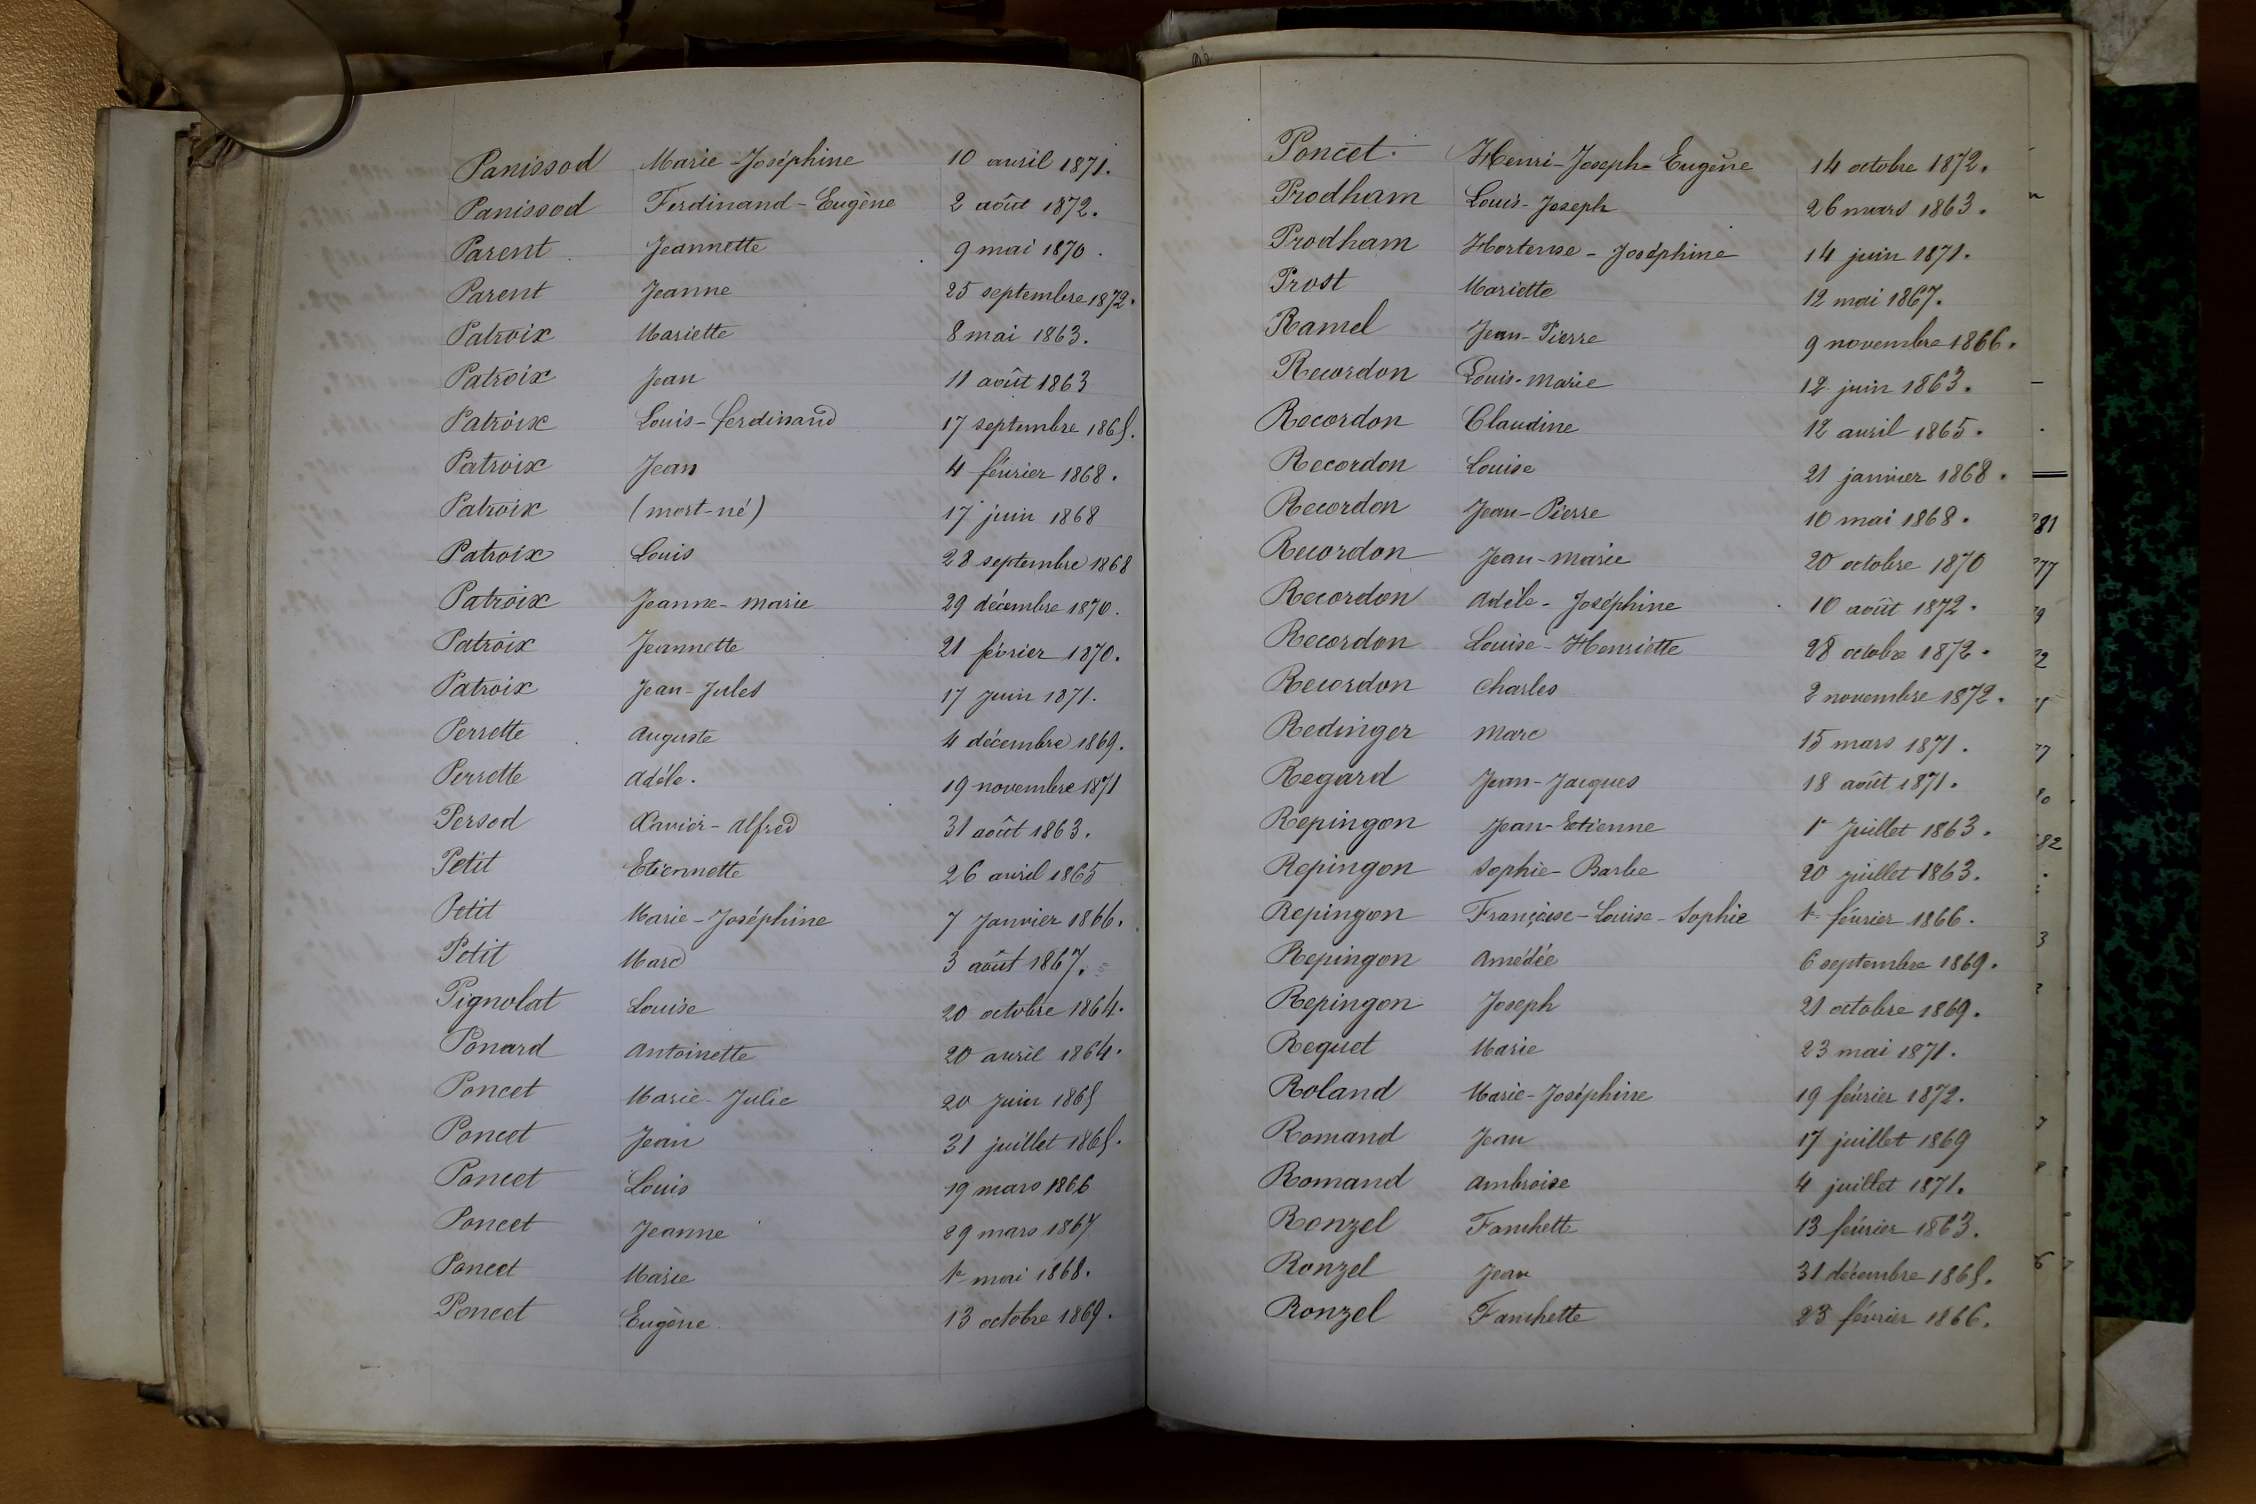 Panissod Marie-Joséphine 10 avril 1871.
Panissod Ferdinand-Eugène 2 août 1872.
Parent Jeannette 9 mai 1870.
Parent Jeanne 25 septembre 1872.
Patroix Mariette 8 mai 1863.
Patroix Jean 11 août 1863
Patroix Louis-ferdinand 17 septembre 1865.
Patroix Jean 4 février 1868.
Patroix (mort-né) 17 juin 1868
Patroix Louis 28 septembre 1868
Patroix Jeanne-marie 29 décembre 1870.
Patroix Jeannette 21 février 1870.
Patroix Jean-Jules 17 Juin 1871.
Perrette Auguste 4 décembre 1869.
Perrette Adéle. 19 novembre 1871
Persod Xavier-Alfred 31 août 1863.
Petit Etiennette 26 avril 1865
Petit Marie-Joséphine 7 Janvier 1866.
Petit Marc 3 août 1867.
Pignolat Louise 20 octobre 1864.
Ponard Antoinette 20 avril 1864.
Poncet Marie-Julie 20 Juin 1865
Poncet Jean 31 juillet 1865.
Poncet Louis 19 mars 1866
Poncet Jeanne 29 mars 1867
Poncet Marie 1er mai 1868.
Poncet Eugène 13 octobre 1869.
Poncet. Henri-Joseph-Eugène 14 octobre 1872.
Prodham Louis-Joseph 26 mars 1863.
Prodham Hortense-Joséphine 14 juin 1871.
Prost Mariette 12 mai 1867.
Ramel Jean-Pierre 9 novembre 1866.
Recordon Louis-marie 12 juin 1863.
Recordon Claudine 12 avril 1865.
Recordon Louise 21 janvier 1868.
Recordon Jean-Pierre 10 mai 1868.
Recordon Jean-marie 20 octobre 1870
Recordon Adèle-Joséphine 10 août 1872.
Recordon Louise-Henriette 28 octobre 1872.
Recordon Charles 2 novembre 1872.
Redinger Marc 15 mars 1871.
Regard Jean-Jacques 18 août 1871.
Repingon Jean-Etienne 1r Juillet 1863.
Repingon Sophie-Barbe 20 juillet 1863.
Repingon Françoise-Louise-Sophie 1r février 1866.
Repingon Amédée 6 septembre 1869.
Repingon Joseph 21 octobre 1869.
Requet Marie 23 mai 1871.
Roland Marie-Joséphine 19 février 1872.
Romand Jean 17 juillet 1869
Romand Ambroise 4 juillet 1871.
Ronzel Fanchette 13 février 1863.
Ronzel Jean 31 décembre 1865.
Ronzel Fanchette 23 février 1866.